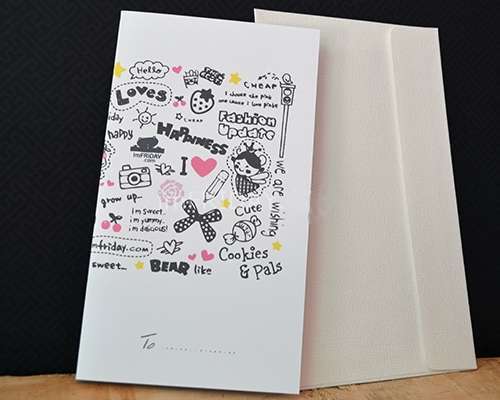 Hello
CHEAP
Loves
I choose the pink
CHEAP
Fashion
Update
happy
HAPPINESS
ImFRIDAY
.com
I
we are wishing
grow up..
i'm sweet.
i'm yummy.
i'm delicious!
Cute
mfriday.com
Cookies
& Pals
sweet...
BEAR like
To